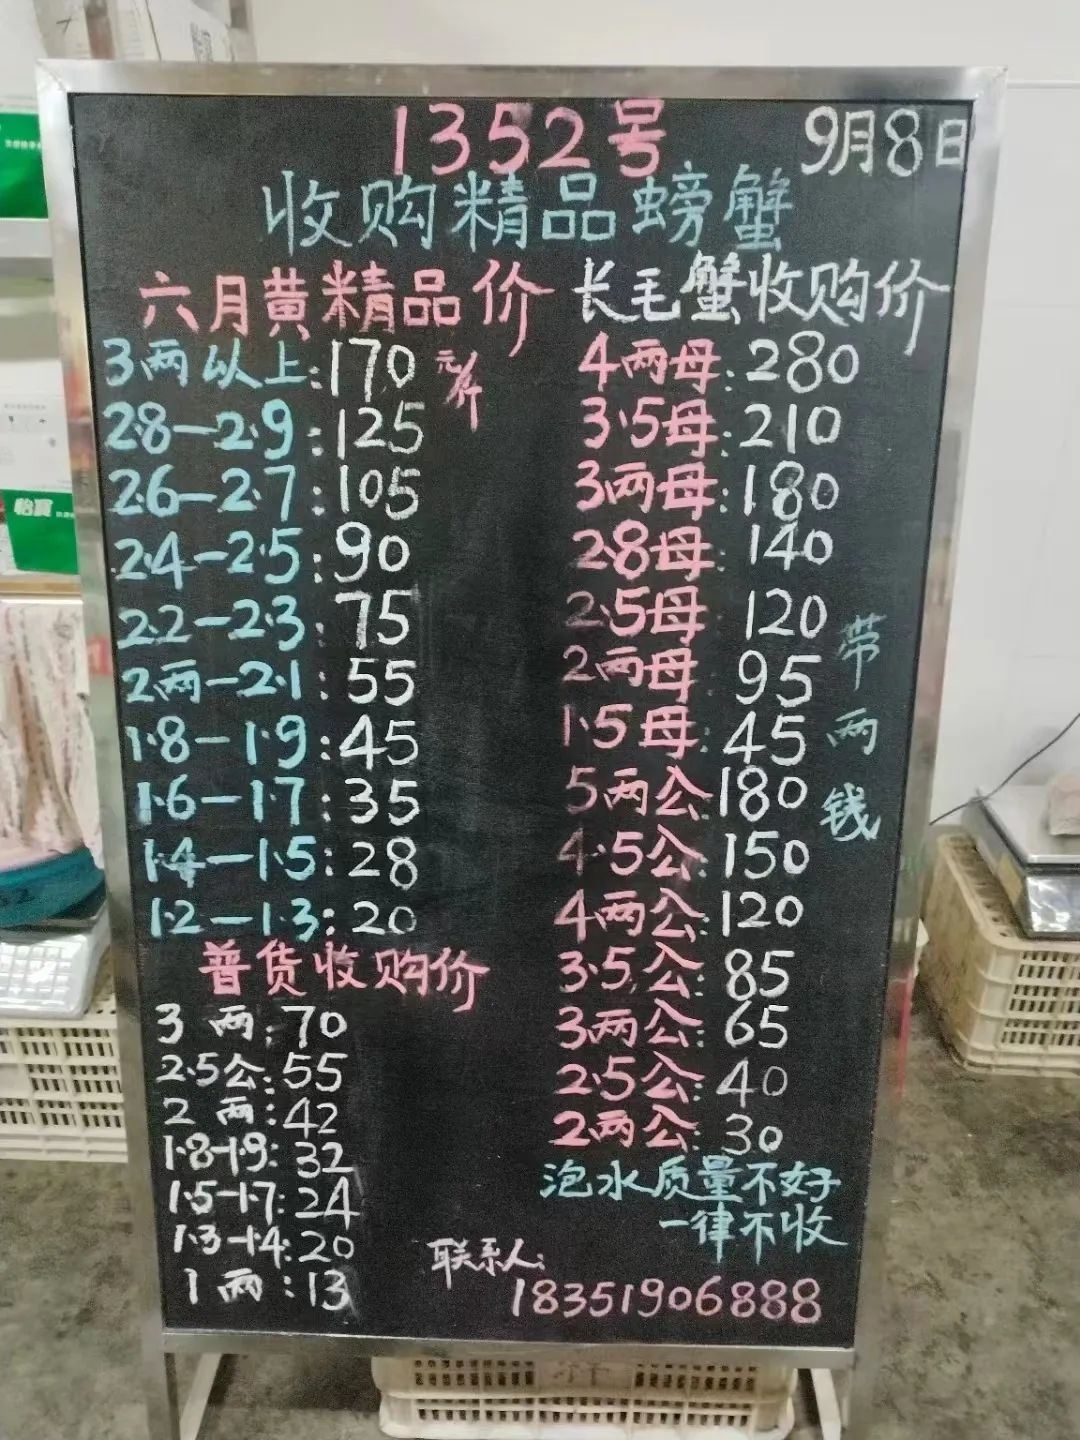 1352号 9月8日
收购精品螃蟹
六月黄精品价
3两以上:170 元/斤
2.8-2.9:125
2.6-2.7:105
2.4-2.5:90
2.2-2.3:75
2两-2.1:55
1.8-1.9:45
1.6-1.7:35
1.4-1.5:28
1.2-1.3:20
普货收购价
3两:70
2.5公:55
2两:42
1.8-1.9:32
1.5-1.7:24
1.3-1.4:20
1两:13
长毛蟹收购价
4两母:280
3.5母:210
3两母:180
2.8母:140
2.5母:120
2两母:95
1.5母:45
5两公:180
4.5公:150
4两公:120
3.5公:85
3两公:65
2.5公:40
2两公:30
带两钱
泡水质量不好
一律不收
联系人:
18351906888
怡寶